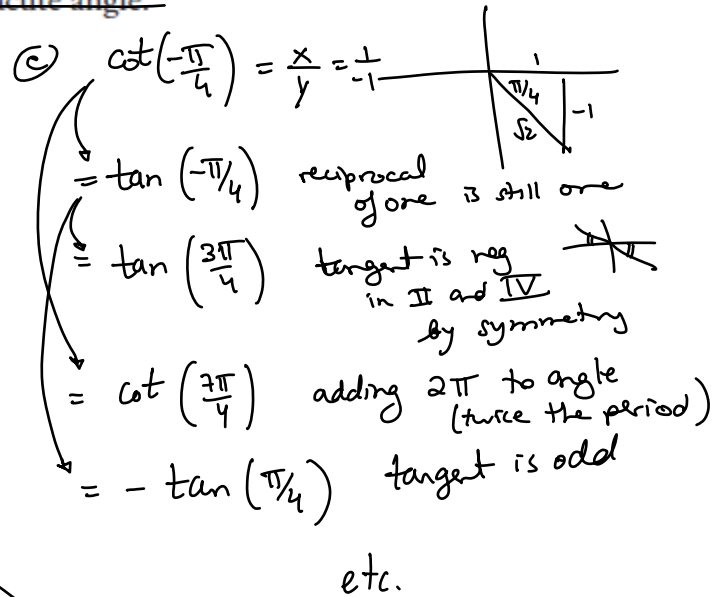 acute angle.
ⓒ cot(-π/4) = x/y = 1/-1
1
π/4
-1
√2
= tan (-π/4) reciprocal
of one is still one
= tan (3π/4) tangent is neg
in II and IV
by symmetry
= cot (7π/4) adding 2π to angle
(twice the period)
= - tan (π/4) tangent is odd
etc.